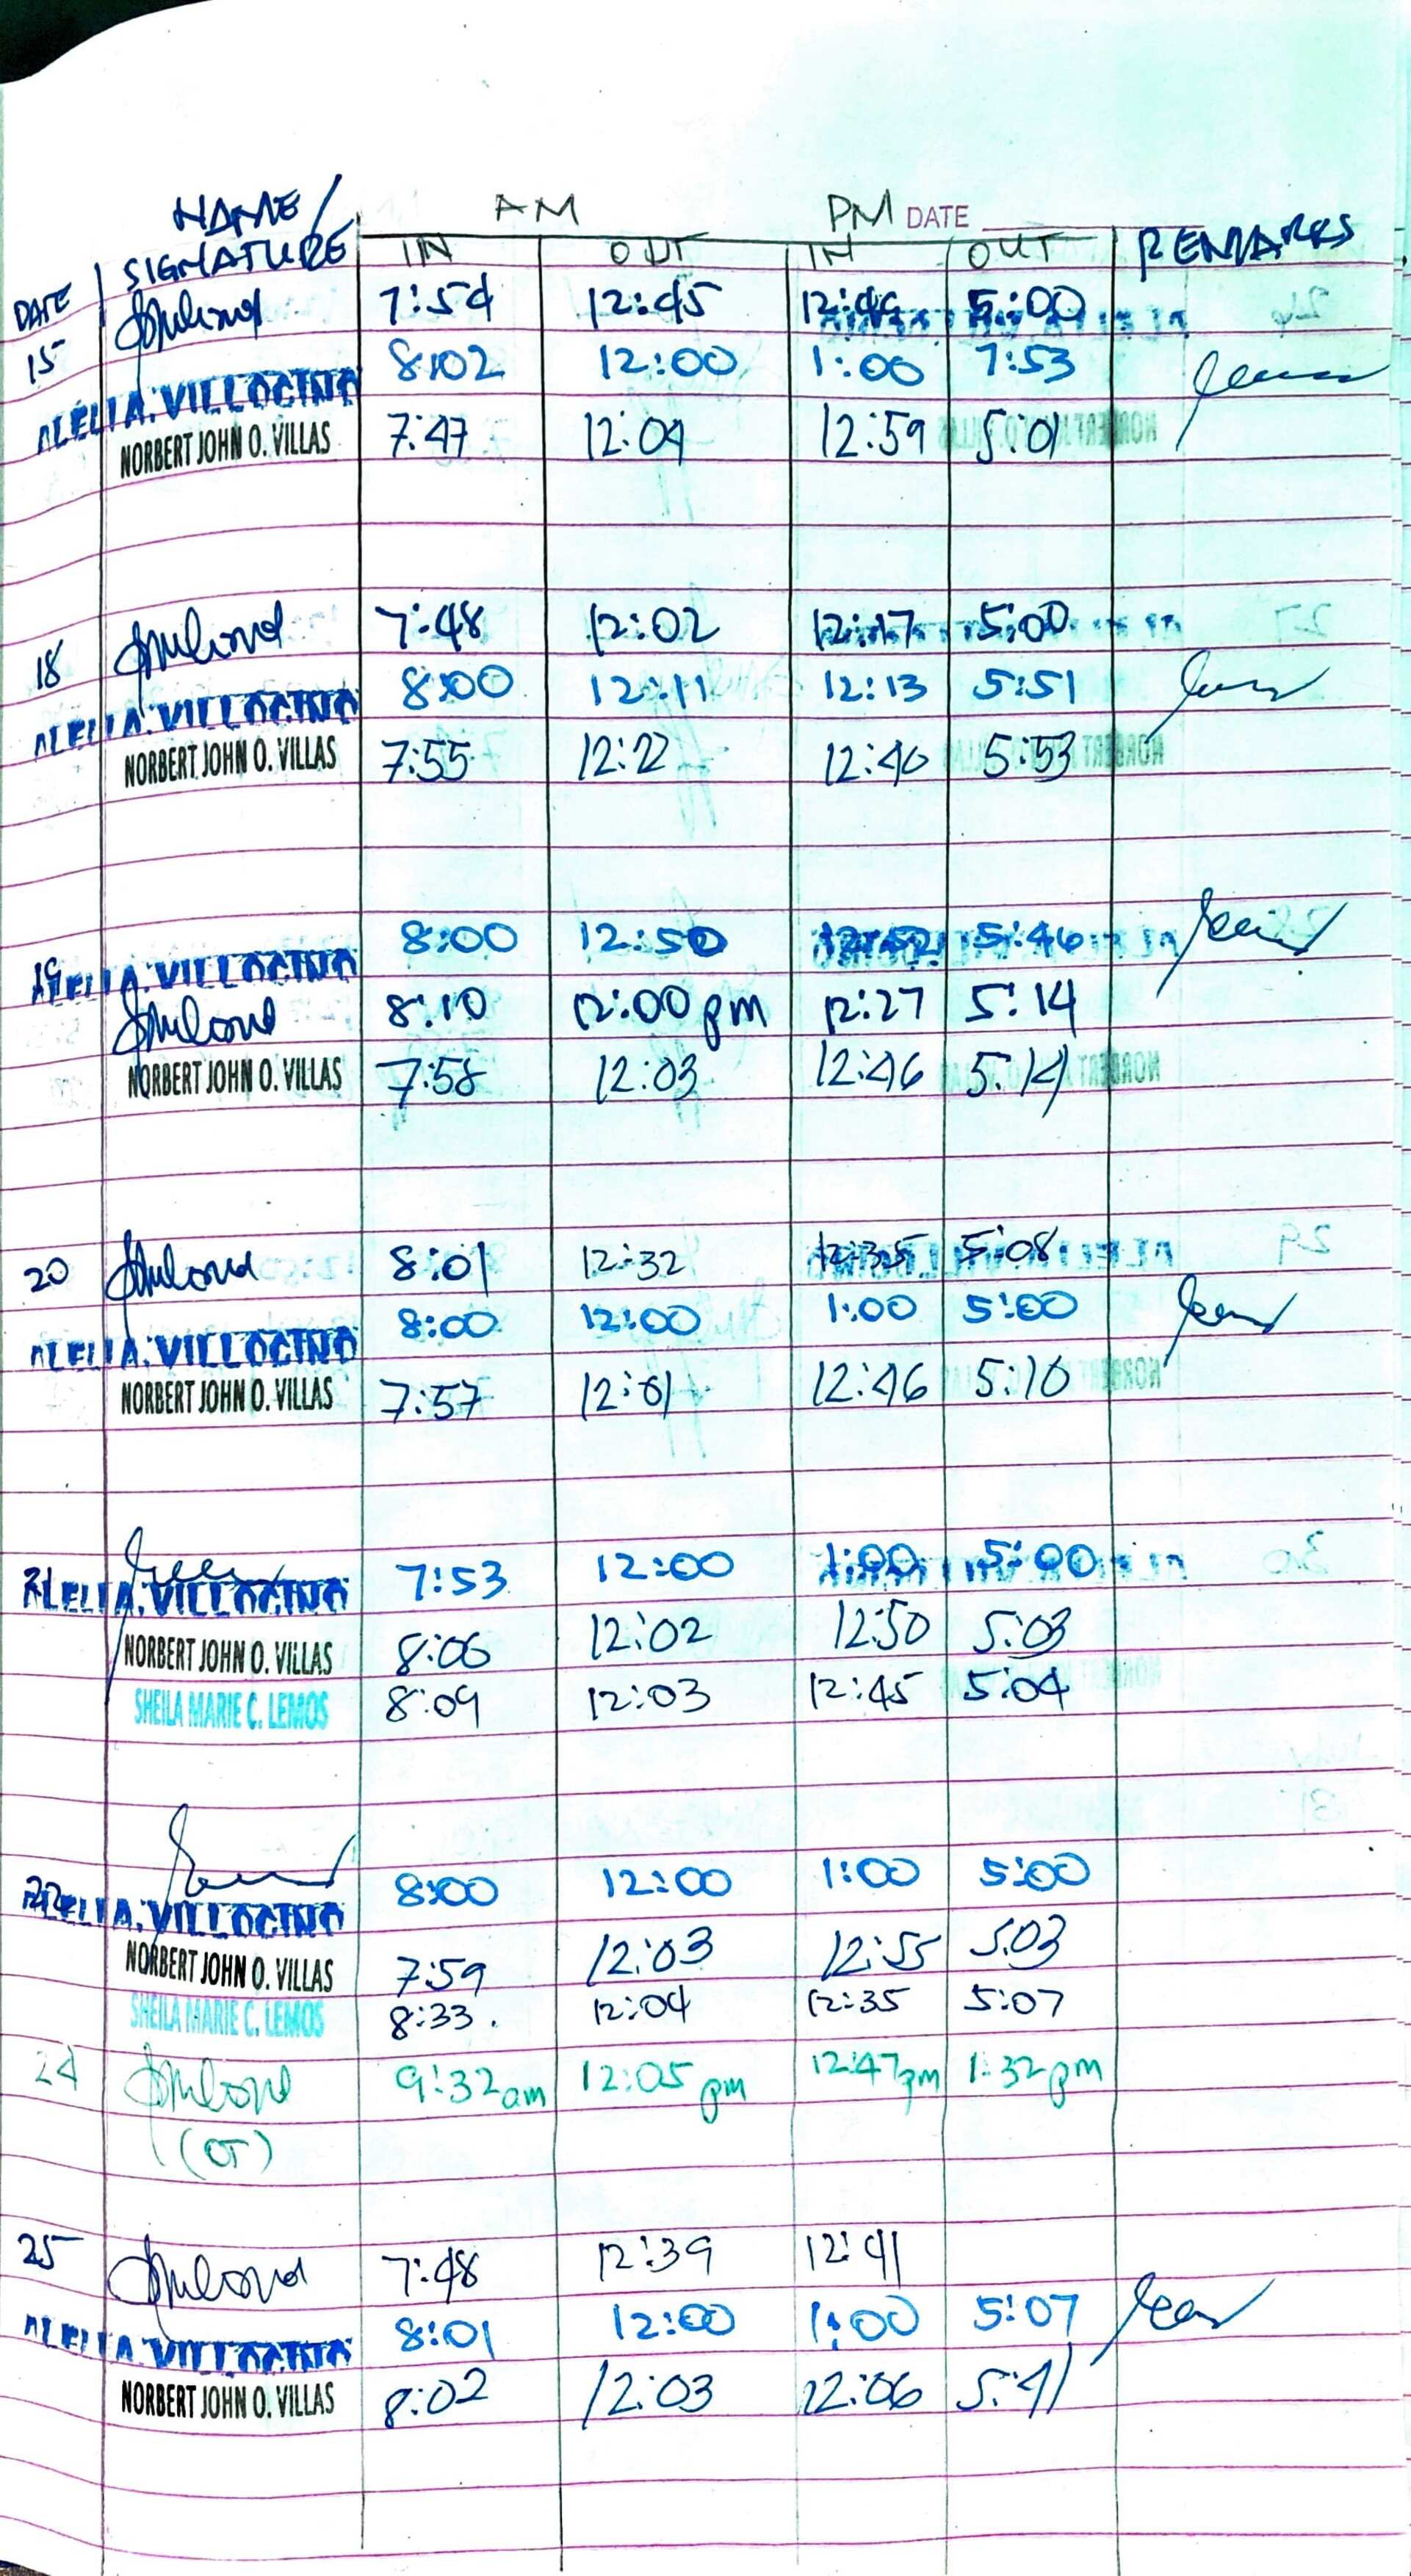 NAME/ AM PM DATE
DATE SIGNATURE IN OUT IN OUT REMARKS
15 7:54 12:45 12:46 5:00
ALELI A. VILLOCINO 8:02 12:00 1:00 7:53
NORBERT JOHN O. VILLAS 7:47 12:04 12:59 5:01
18 7:48 12:02 12:17 5:00
ALELI A. VILLOCINO 8:00 12:11 12:13 5:51
NORBERT JOHN O. VILLAS 7:55 12:22 12:46 5:53
19 ALELI A. VILLOCINO 8:00 12:50 12:52 5:46
8:10 12:00 pm 12:27 5:14
NORBERT JOHN O. VILLAS 7:58 12:03 12:46 5:14
20 8:01 12:32 12:35 5:08
ALELI A. VILLOCINO 8:00 12:00 1:00 5:00
NORBERT JOHN O. VILLAS 7:57 12:01 12:46 5:10
21 ALELI A. VILLOCINO 7:53 12:00 1:00 5:00
NORBERT JOHN O. VILLAS 8:06 12:02 12:50 5:03
SHEILA MARIE C. LEMOS 8:09 12:03 12:45 5:04
22 ALELI A. VILLOCINO 8:00 12:00 1:00 5:00
NORBERT JOHN O. VILLAS 7:59 12:03 12:55 5:03
SHEILA MARIE C. LEMOS 8:33 12:04 12:35 5:07
24 9:32 am 12:05 pm 12:47 pm 1:32 pm
(OT)
25 7:48 12:39 12:41
ALELI A. VILLOCINO 8:01 12:00 1:00 5:07
NORBERT JOHN O. VILLAS 8:02 12:03 12:06 5:41